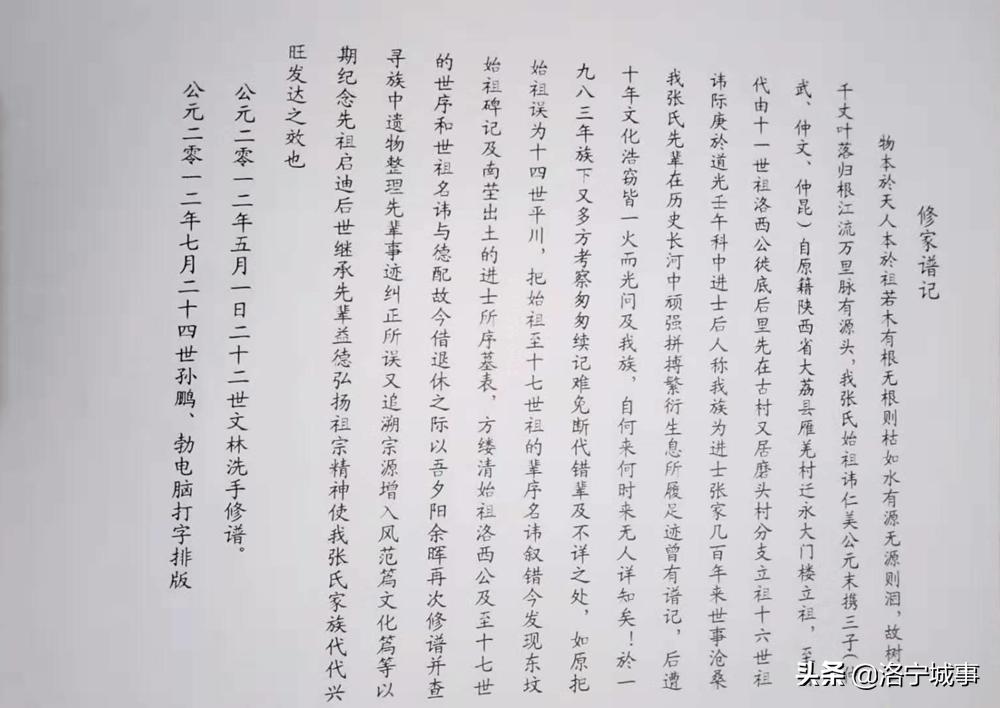 修家谱记
物本於天人本於祖若木有根无根则枯如水有源无源则涸，故树
千丈叶落归根江流万里脉有源头，我张氏始祖讳仁美公元末携三子（
武、仲文、仲昆）自原籍陕西省大荔县雁羌村迁永大门楼立祖，至
代由十一世祖洛西公徙底后里先在古村又居磨头村分支立祖十六世祖
讳际庚於道光壬午科中进士后人称我族为进士张家几百年来世事沧桑
我张氏先辈在历史长河中顽强拼搏繁衍生息所履足迹曾有谱记，后遭
十年文化浩窃皆一火而光问及我族，自何来何时来无人详知矣！於一
九八三年族下又多方考察匆匆续记难免断代错辈及不详之处，如原把
始祖误为十四世平川，把始祖至十七世祖的辈序名讳叙错今发现东坟
始祖碑记及南茔出土的进士所序墓表，方缕清始祖洛西公及至十七世
的世序和世祖名讳与德配故今借退休之际以吾夕阳余晖再次修谱并查
寻族中遗物整理先辈事迹纠正所误又追溯宗源增入风范篇文化篇等以
期纪念先祖启迪后世继承先辈益德弘扬祖宗精神使我张氏家族代代兴
旺发达之效也
公元二零一二年五月一日二十二世文林洗手修谱。
公元二零一二年七月二十四世孙鹏、勃电脑打字排版
头条 @洛宁城事